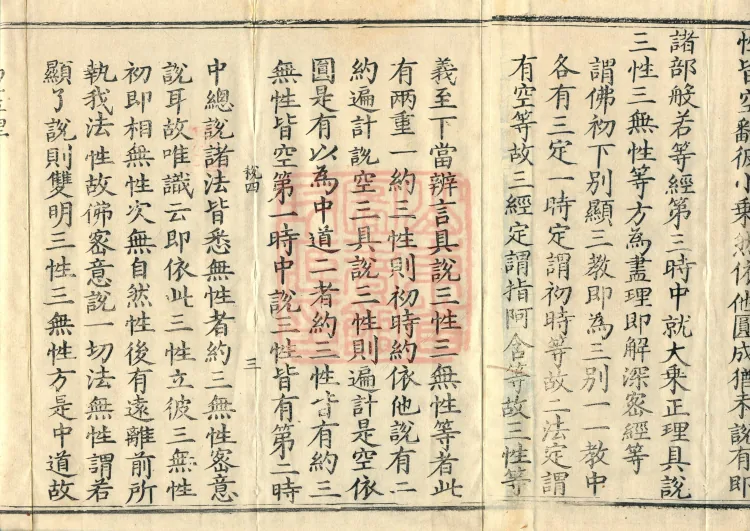 性皆空翻彼小乘然依他圓成猶未說有即
諸部般若等經第三時中就大乘正理具說
三性三無性等方為盡理即解深密經等
謂佛初下別顯三教即為三別一一教中
各有三定一時定謂初時等故二法定謂
有空等故三經定謂指阿含等故三性等
義至下當辨言具說三性三無性等者此
有兩重一約三性則初時約依他說有二
約遍計說空三具說三性則遍計是空依
圓是有以為中道二者約三性皆有約三
無性皆空第一時中說三性皆有第二時
說四
三
中總說諸法皆悉無性者約三無性密意
說耳故唯識云即依此三性立彼三無性
初即相無性次無自然性後有遠離前所
執我法性故佛密意說一切法無性謂若
顯了說則雙明三性三無性方是中道故